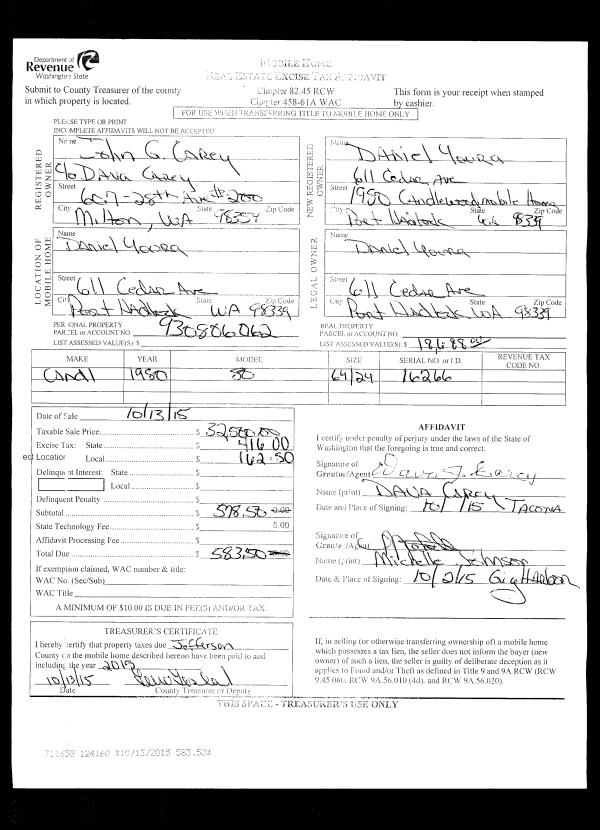 Department of
Revenue
Washington State
MOBILE HOME
REAL ESTATE EXCISE TAX AFFIDAVIT
Submit to County Treasurer of the county
in which property is located.
Chapter 82.45 RCW
Chapter 458-61A WAC
This form is your receipt when stamped
by cashier.
FOR USE WHEN TRANSFERRING TITLE TO MOBILE HOME ONLY
PLEASE TYPE OR PRINT
INCOMPLETE AFFIDAVITS WILL NOT BE ACCEPTED
REGISTERED OWNER
Name John G. Carey
c/o Dana Carey
Street 607-28th Ave #200
City Milton, WA State 98354 Zip Code
NEW REGISTERED OWNER
Name Daniel Youra
611 Cedar Ave
Street 1980 Candlewood mobile Home
City Port Hadlock State WA 98339 Zip Code
LOCATION OF MOBILE HOME
Name Daniel Youra
Street 611 Cedar Ave
City Port Hadlock State WA 98339 Zip Code
LEGAL OWNER
Name Daniel Youra
Street 611 Cedar Ave
City Port Hadlock State WA 98339 Zip Code
PERSONAL PROPERTY
PARCEL or ACCOUNT NO. 930806062
LIST ASSESSED VALUE(S): $
REAL PROPERTY
PARCEL or ACCOUNT NO.
LIST ASSESSED VALUE(S): $ 18,688.00
MAKE YEAR MODEL SIZE SERIAL NO. or I.D. REVENUE TAX CODE NO.
Candl 1980 80 64/24 16266
Date of Sale 10/13/15
Taxable Sale Price $ 32,500.00
Excise Tax: State $ 416.00
ect Location Local $ 162.50
Delinquent Interest: State $
Local $
Delinquent Penalty $
Subtotal $ 578.50 0.00
State Technology Fee $ 5.00
Affidavit Processing Fee $
Total Due $ 583.50
If exemption claimed, WAC number & title:
WAC No. (Sec/Sub)
WAC Title
A MINIMUM OF $10.00 IS DUE IN FEE(S) AND/OR TAX.
AFFIDAVIT
I certify under penalty of perjury under the laws of the State of
Washington that the foregoing is true and correct.
Signature of
Grantor/Agent Dana J. Carey
Name (print) DANA CAREY
Date and Place of Signing: 10/ /15 TACOMA
Signature of
Grantee/Agent
Name (print) Michelle Johnson
Date & Place of Signing: 10/2/15 Gig Harbor
TREASURER'S CERTIFICATE
I hereby certify that property taxes due Jefferson
County on the mobile home described hereon have been paid to and
including the year 2015
10/13/15
Date County Treasurer or Deputy
If, in selling (or otherwise transferring ownership of) a mobile home
which possesses a tax lien, the seller does not inform the buyer (new
owner) of such a lien, the seller is guilty of deliberate deception as it
applies to Fraud and/or Theft as defined in Title 9 and 9A RCW (RCW
9.45.060, RCW 9A.56.010 (4d), and RCW 9A.56.020).
THIS SPACE - TREASURER'S USE ONLY
711658 124160 *10/13/2015 583.50*